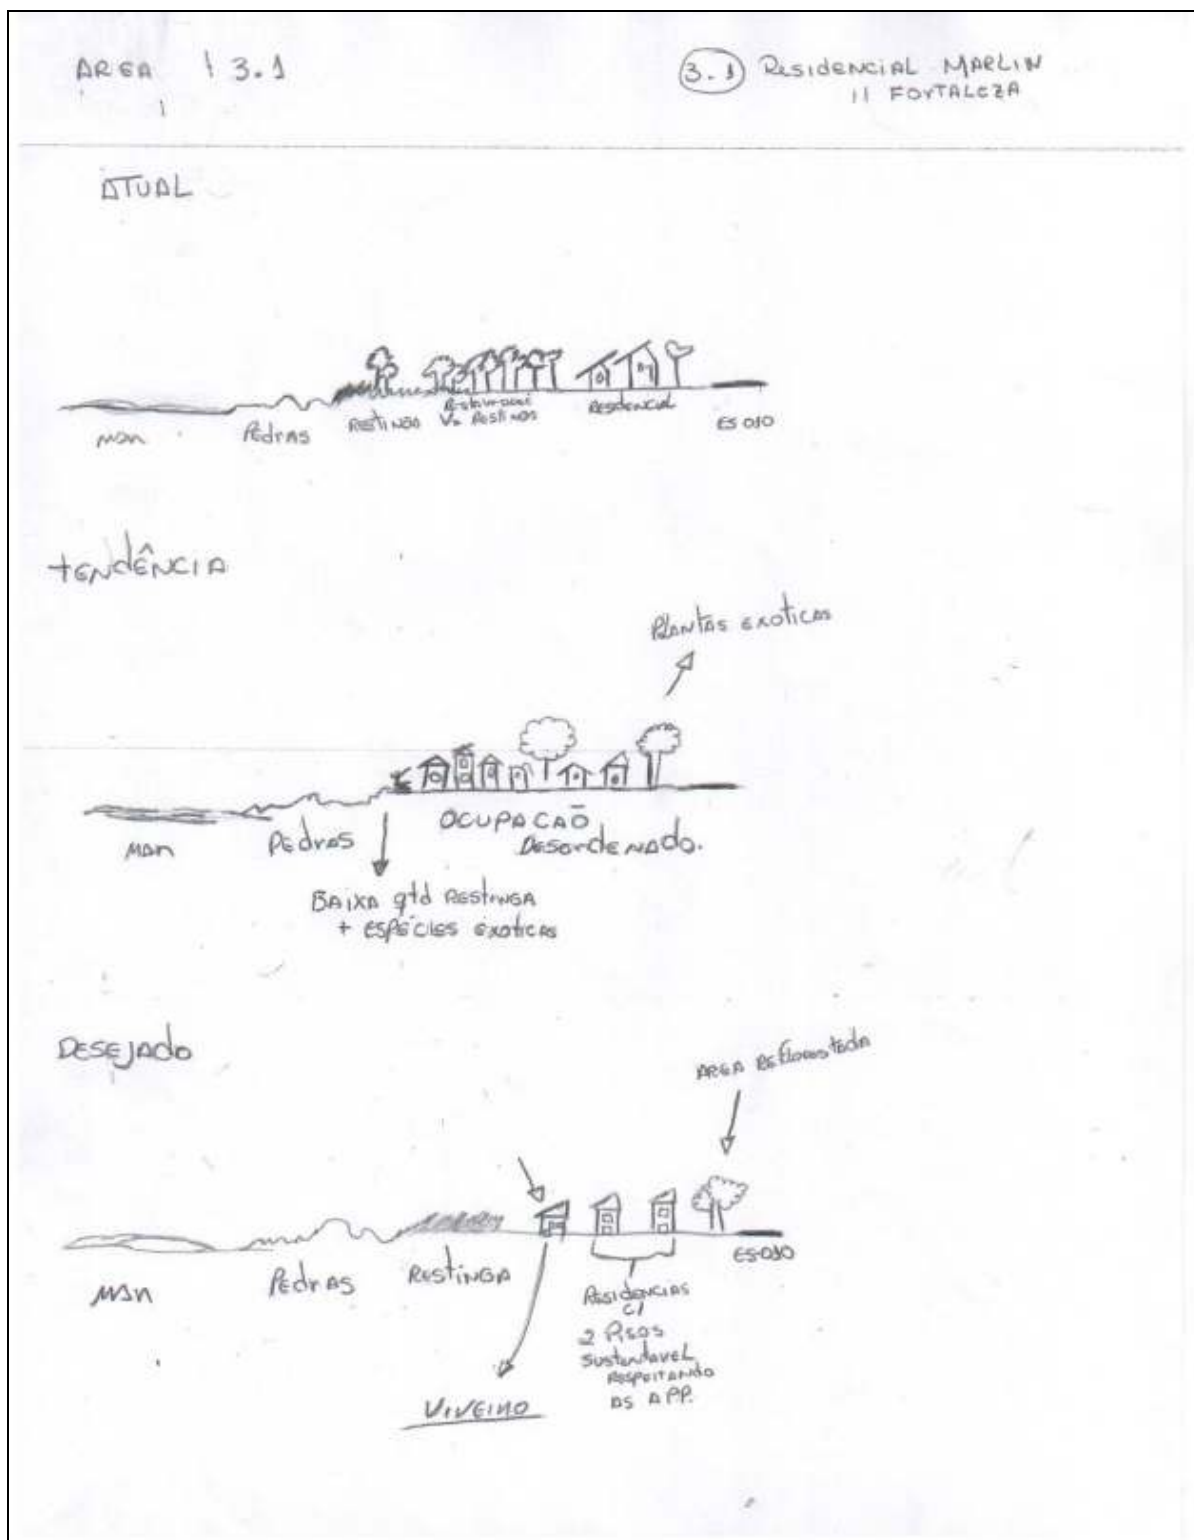 AREA 3.1
3.1 RESIDENCIAL MARLIN
II FORTALEZA
ATUAL
MAR
PEDRAS
RESTINGA
RESTINGA
RESIDENCIAL
ES 010
TENDÊNCIA
PLANTAS EXOTICAS
MAR
PEDRAS
OCUPACAÕ
DESORDENADO.
BAIXA qtd RESTINGA
+ ESPÉCIES EXOTICAS
DESEJADO
AREA REFLORESTADA
MAR
PEDRAS
RESTINGA
ES-010
RESIDENCIAS
C/
2 PISOS
SUSTENTAVEL
RESPEITANDO
AS APP.
VIVEIRO